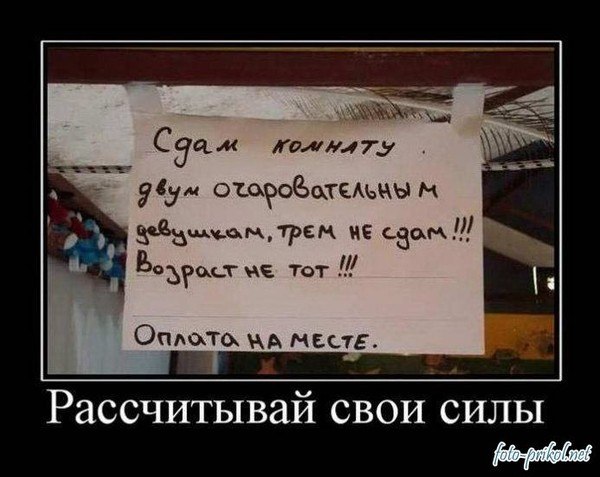 Сдам комнату.
двум очаровательным
девушкам, трем не сдам!!!
Возраст не тот!!!
Оплата на месте.
Рассчитывай свои силы
foto-prikol.net